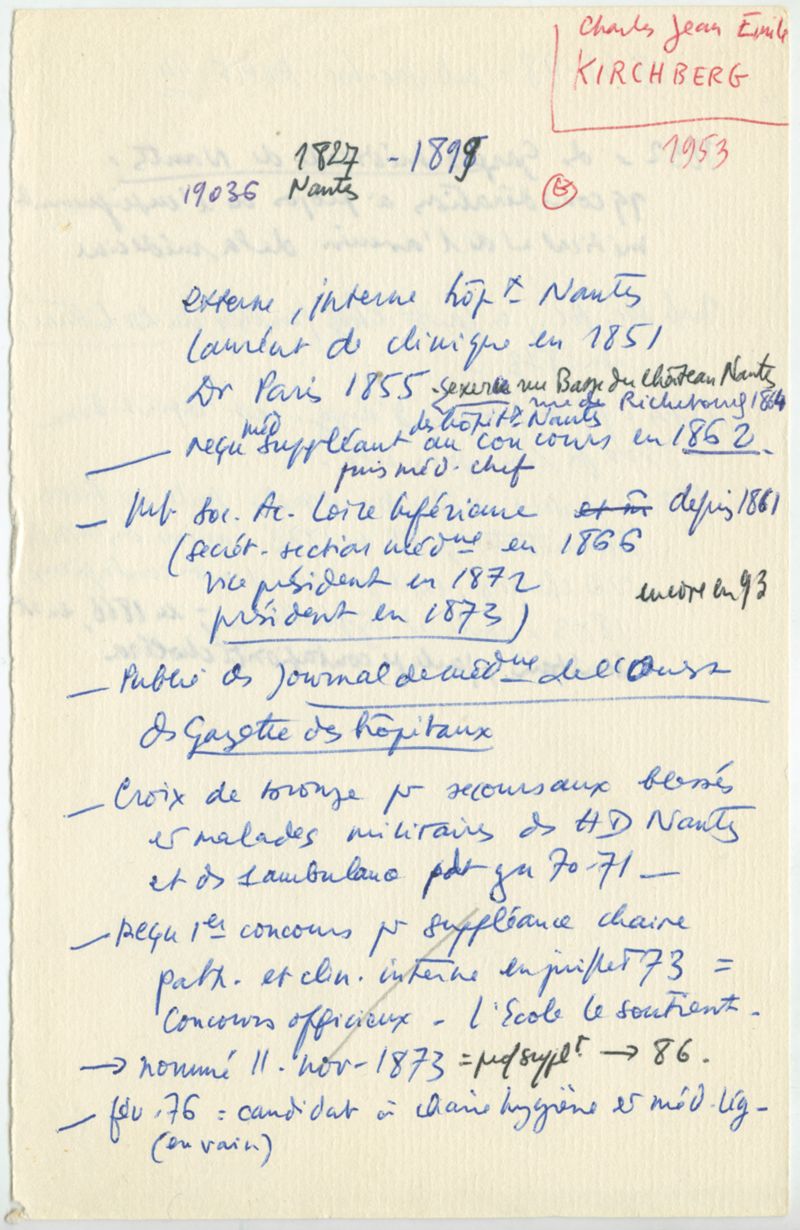 Charles Jean Emile
KIRCHBERG
1953
1827 - 1898
19036 Nantes
externe, interne hôpx Nantes
Lauréat de clinique en 1851
Dr Paris 1855 exerce rue Basse du Château Nantes
rue de Richebourg 1864
méd des hôpitx Nantes
reçu suppléant au concours en 1862.
puis méd. chef
Mb. Soc. Ac. Loire Inférieure depuis 1861
(secrét. section médne en 1866
vice président en 1872 encore en 93
président en 1873)
- Publié ds Journal de médne de l'Ouest
ds Gazette des hôpitaux
- Croix de bronze pr secours aux blessés
et malades militaires ds HD Nantes
et ds 1 ambulance pdt gu 70-71 -
- Reçu 1er concours pr suppléance chaire
path. et clin. interne en juillet 73 =
concours officieux - l'Ecole le soutient -
→ nommé 11. nov - 1873 = prof supplt → 86.
- fév. 76 = candidat à chaire hygiène et méd. lég -
(en vain)